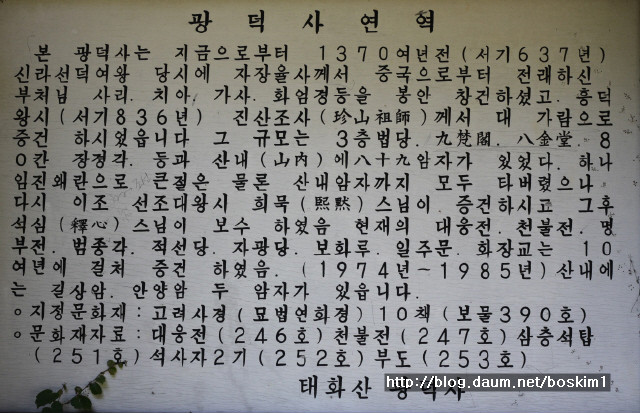 광덕사연역
본 광덕사는 지금으로부터 1370여년전(서기637년)
신라선덕여왕 당시에 자장율사께서 중국으로부터 전래하신
부처님 사리. 치아. 가사. 화엄경등을 봉안 창건하셨고. 흥덕
왕시(서기836년) 진산조사(珍山祖師)께서 대 가람으로
중건 하시었읍니다 그 규모는 3층법당. 九梵閣. 八金堂. 8
0칸 장경각. 동과 산내(山內)에八十九암자가 있었다. 하나
임진왜란으로 큰절은 물론 산내암자까지 모두 타버렸으나
다시 이조 선조대왕시 희묵(熙黙)스님이. 중건하시고 그후
석심(釋心)스님이 보수 하였음 현재의 대웅전. 천불전. 명
부전. 범종각. 적선당. 자광당. 보화루. 일주문. 화장교는 10
여년에 걸처 중건 하였음. (1974년~1985년)산내에
는 길상암. 안양암 두 암자가 있읍니다.
○지정문화재:고려사경(묘법연화경)10책(보물390호)
○문화재자료:대웅전(246호)천불전(247호)삼층석탑
(251호)석사자2기(252호)부도(253호)
태화산 광덕사
http://blog.daum.net/boskim1